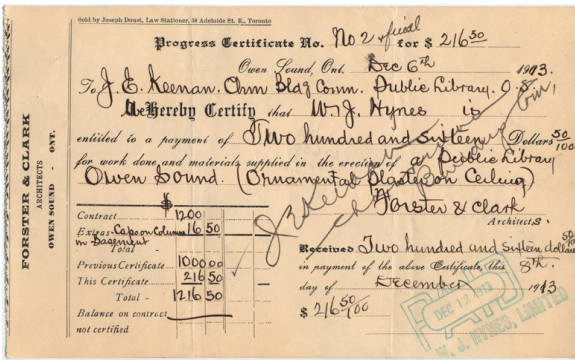 Sold by Joseph Doust, Law Stationer, 38 Adelaide St. E., Toronto
Progress Certificate No. No 2 & final for $ 216 50
Owen Sound, Ont. Dec 6th 1913.
To J. E. Keenan. Chm Bldg Comm. Public Library. O.S.
We Hereby Certify that W. J. Hynes is
entitled to a payment of Two hundred and sixteen Dollars 50/100
for work done and materials supplied in the erection of a Public Library
Owen Sound. (Ornamental Plaster on Ceiling)
Forster & Clark
Architects.
FORSTER & CLARK
ARCHITECTS
OWEN SOUND - ONT.
$
Contract 1200
Extras- Caps on Columns 16 50
in Basement
Total -
Previous Certificate 1000 00
This Certificate 216 50
Total - 1216 50
Balance on contract
not certified
Received Two hundred and sixteen dollars 50/100
in payment of the above Certificate this 8th.
day of December 1913
$ 216 50/100
PAID
DEC 12 1913
W. J. HYNES, LIMITED